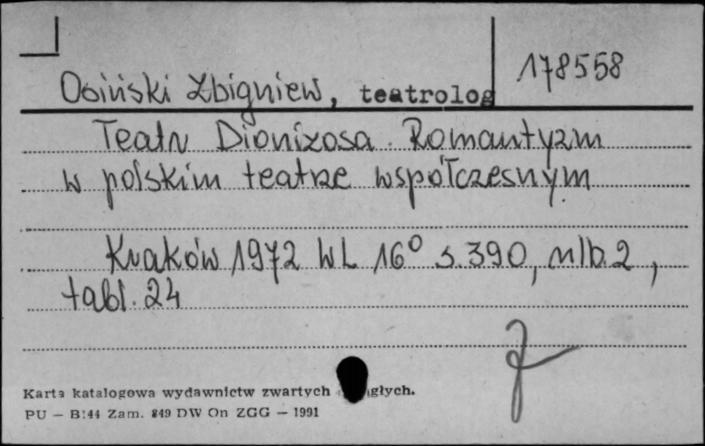 178558
Osiński Zbigniew, teatrolog
Teatr Dionizosa. Romantyzm
w polskim teatrze współczesnym
Kraków 1972 WL 16° s. 390, nlb. 2,
tabl. 24
Karta katalogowa wydawnictw zwartych głych.
PU — B:44 Zam. 849 DW On ZGG — 1991